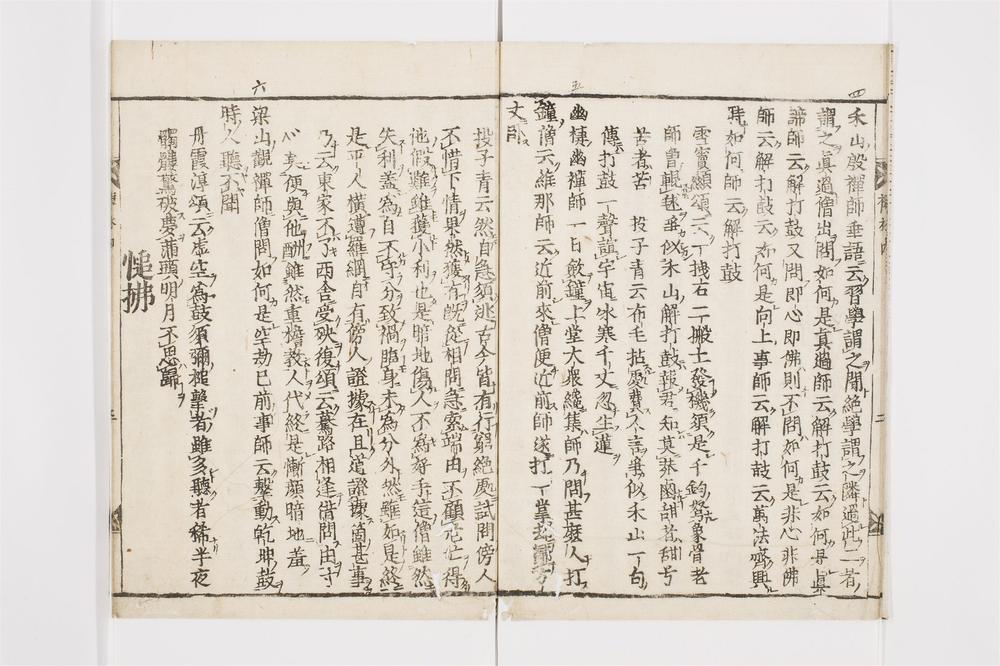 四
禾山殷禪師垂語云習學謂之聞絕學謂之隣過此二者
謂之真過僧出問如何是真過師云解打鼓云如何是真
諦師云解打鼓又問即心即佛則不問如何是非心非佛
師云解打鼓云如何是向上事師云解打鼓云萬法齊興
時如何師云解打鼓
雪竇顯頌云一拽石二般土發機須是千鈞弩象骨老
師曾輥毬爭似禾山解打鼓報君知莫莽鹵甜者甜兮
苦者苦 投子青云布毛拈處費 言爭似禾山一句
傳打鼓一聲 宇宙氷寒千丈忽生蓮
五
幽棲幽禪師一日斂鐘上堂大衆纔集師乃問甚麼人打
鐘僧云維那師云近前來僧便近前師遂打一掌
丈
投子青云然自急須逃古今皆有行窮絕處試問傍人
不惜下情果然獲有旣從相問急索端由不顧 忙得
他假雖雖獲小利也是暗地傷人不爲好手這僧雖然
失利蓋爲自不守分致禍臨身未爲分外然雖如是終
是平人橫遭羅網自有傍人證據在且道證據箇甚事
乃云東家不了西舍受殃復頌云驀路相逢借問由
便與他酬雖然重擔教人代終是慚顏暗地羞
六
梁山觀禪師僧問如何是空劫已前事師云擊動乾坤鼓
時人聽不聞
丹霞淳頌云虛空爲鼓須彌槌擊者雖多聽者稀半夜
髑髏驚破慶滿頭明月不思歸
槌拂